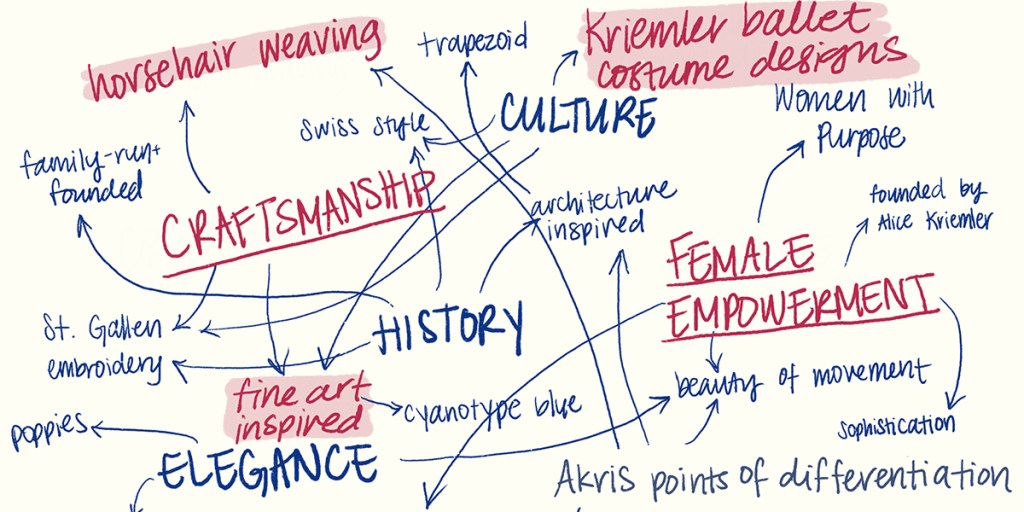 horsehair weaving
trapezoid
Kriemler ballet
costume designs
Swiss style
CULTURE
Women with
Purpose
family-run+
founded
CRAFTSMANSHIP
architecture
inspired
founded by
Alice Kriemler
FEMALE
EMPOWERMENT
St. Gallen
embroidery
HISTORY
fine art
inspired
cyanotype blue
beauty of movement
poppies
sophistication
ELEGANCE
Akris points of differentiation